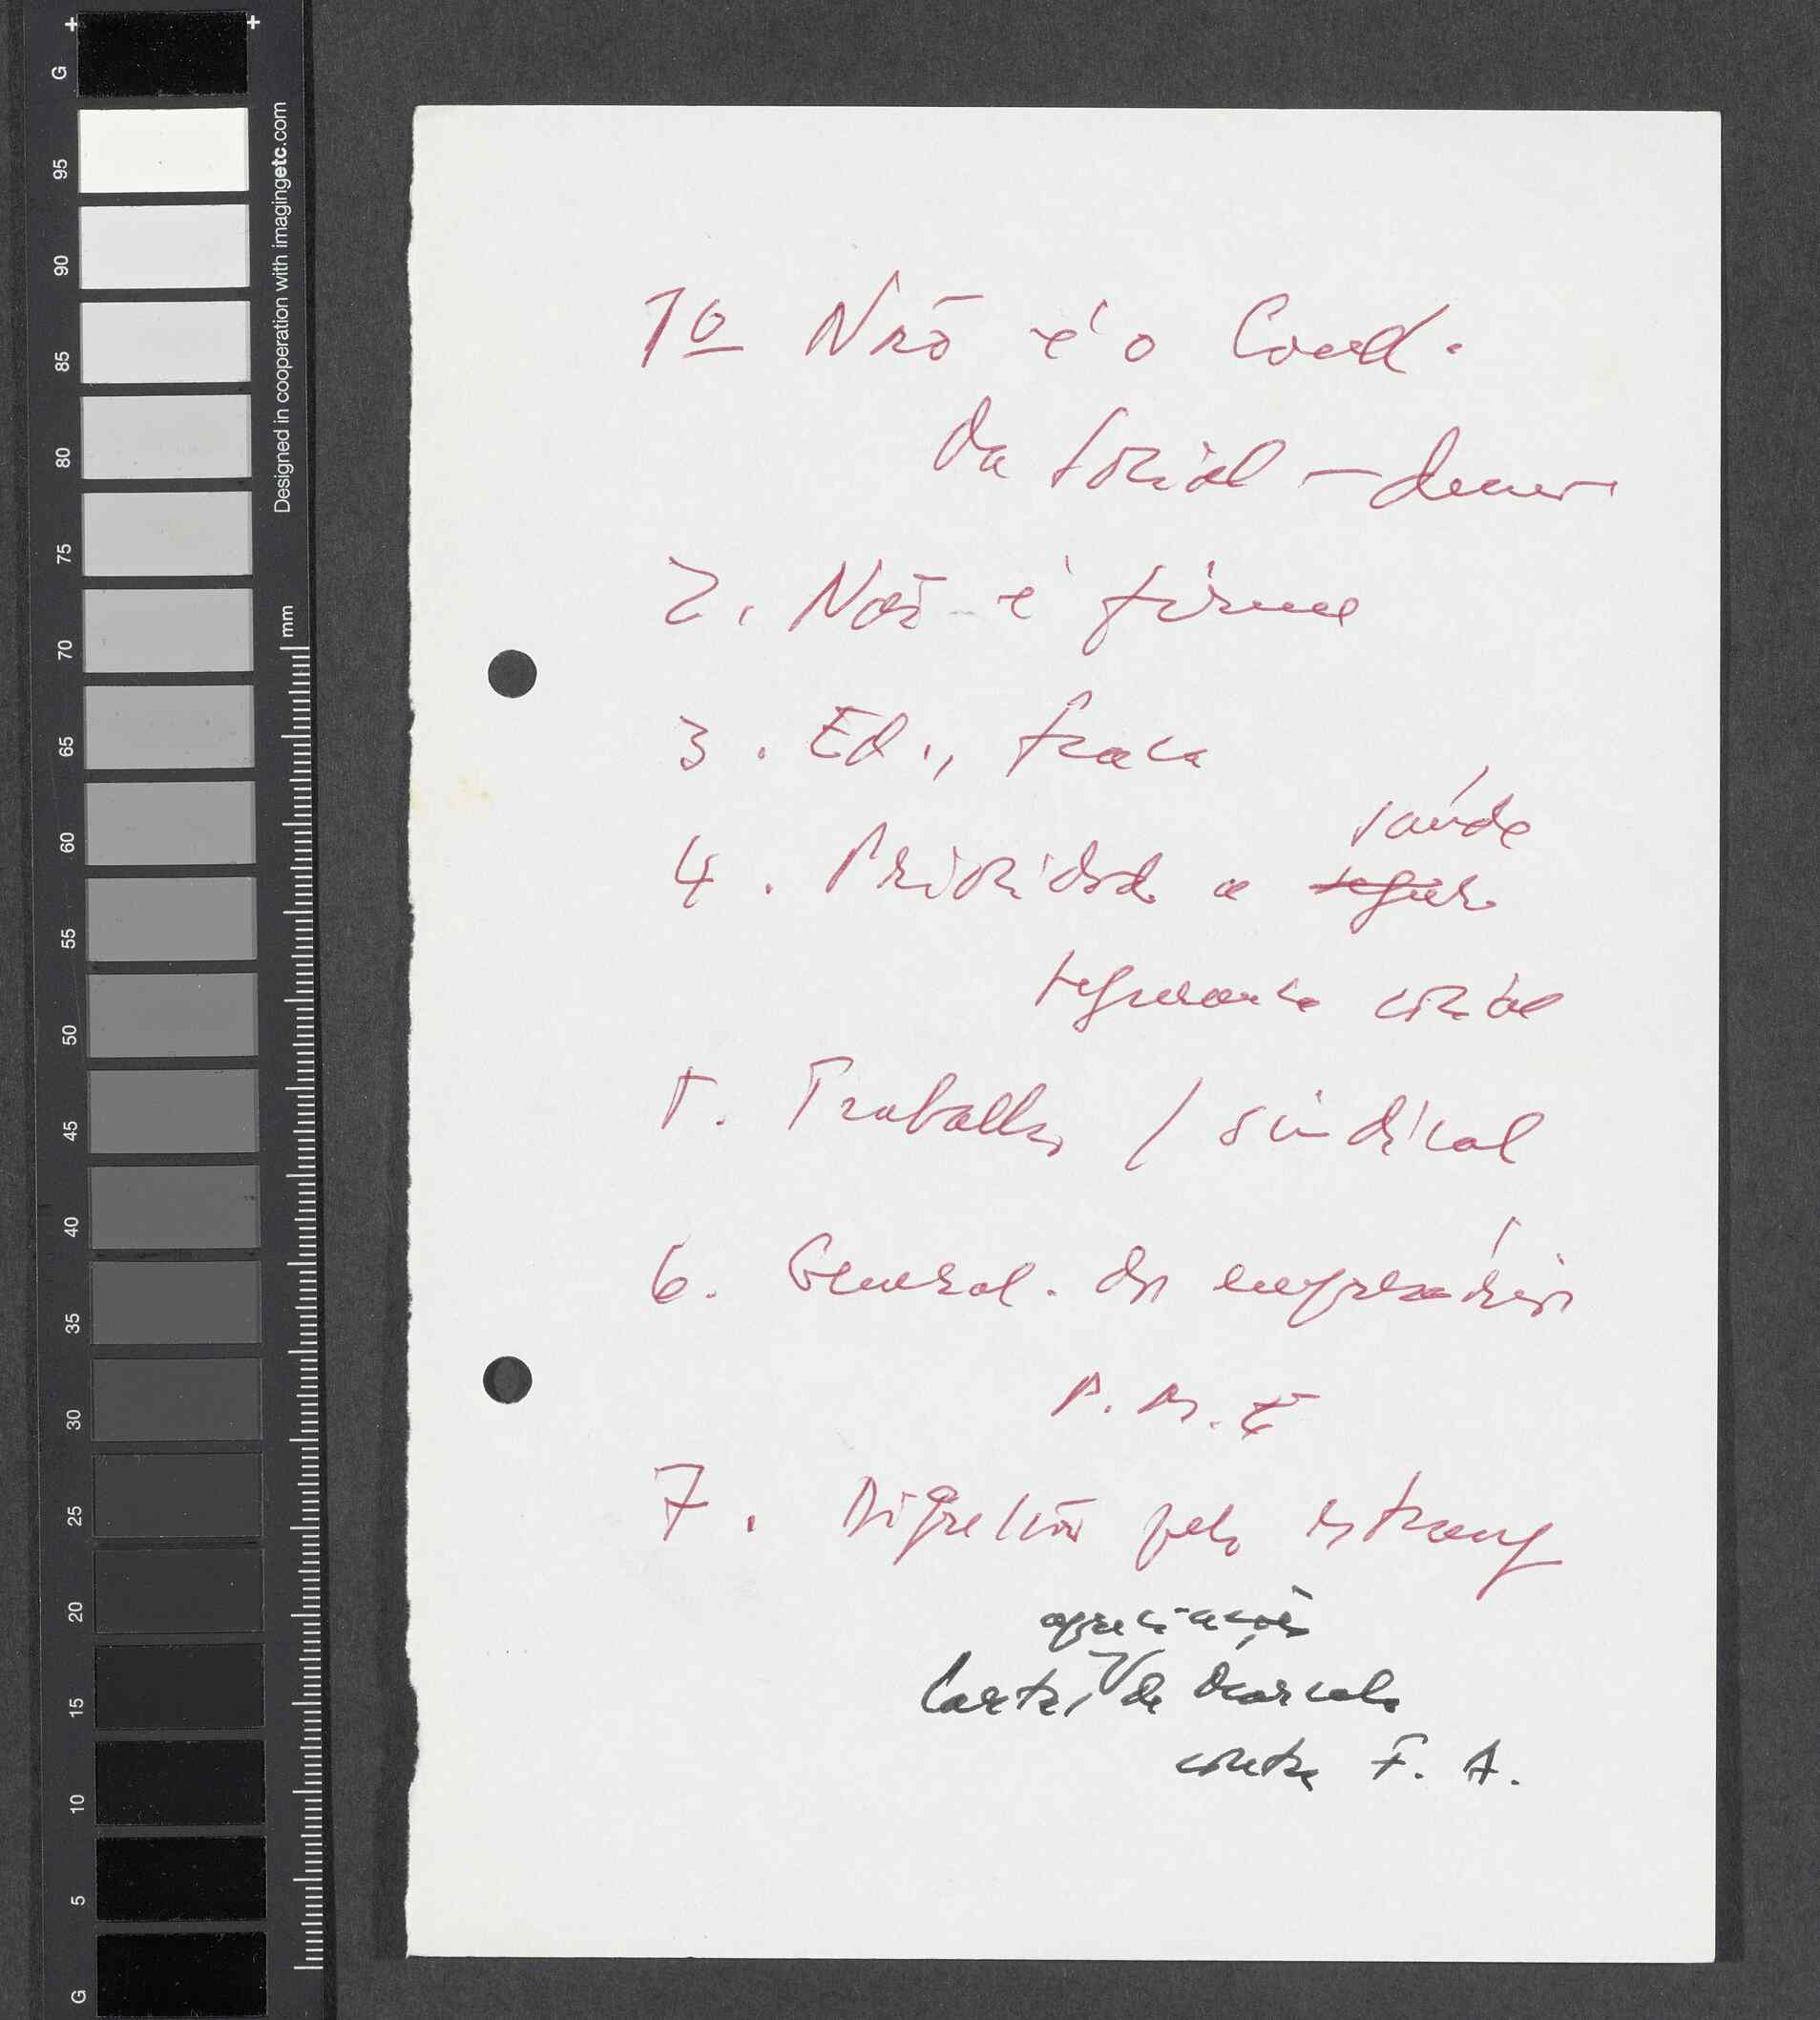 1º Não é o Cond.
da social-democr
2. Não é firme
3. Ed., fraca
saúde
4. Prioridade a segur.
segurança social
5. Trabalho / sindical
6. General. dos empresários
P. M. E
7. pelo estrang
apreciações
Carta, de
contra F. A.
G
95
90
85
80
75
70
65
60
55
50
45
40
35
30
25
20
15
10
5
G
mm
Designed in cooperation with imagingetc.com